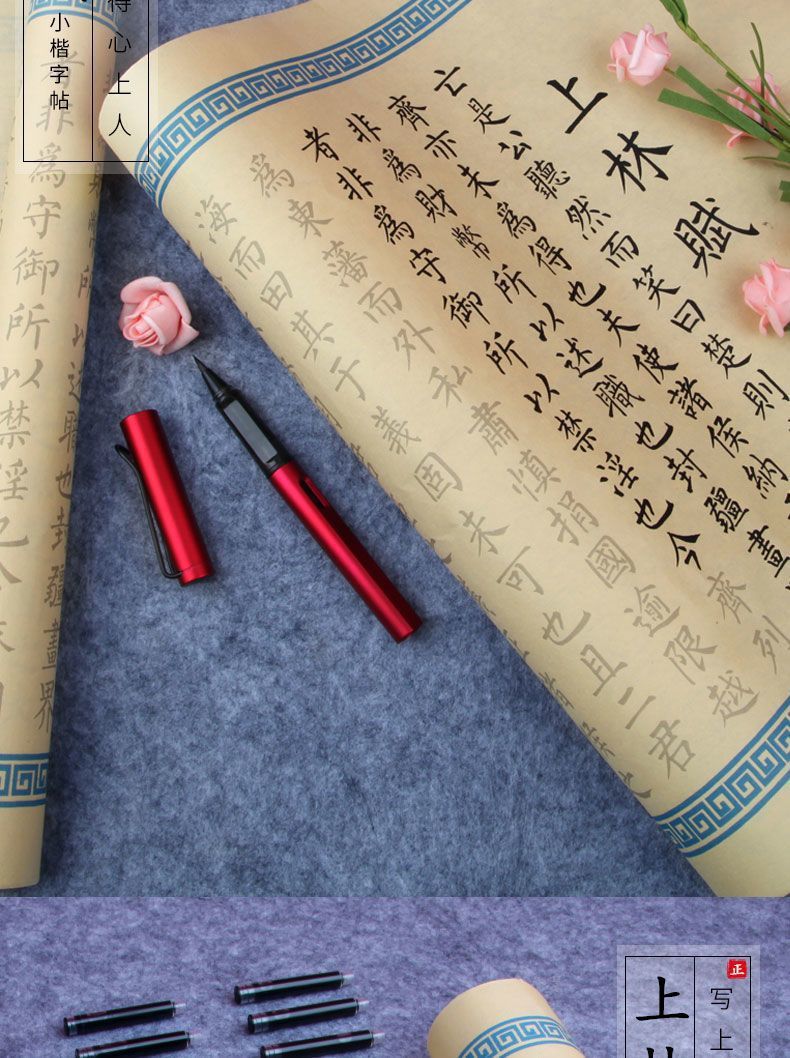 得心上人
小楷字帖
上林賦
亡是公聽然而笑曰楚則
齊亦未為得也夫使諸侯納
非為財幣所以述職也封疆畫
者非為守御所以禁淫也今齊列
為東藩而外私肅慎捐國逾限越
海而田其于義固未可也且二君
幣所以述職也封疆畫界
者非為守御所以禁淫也
正
写上
上